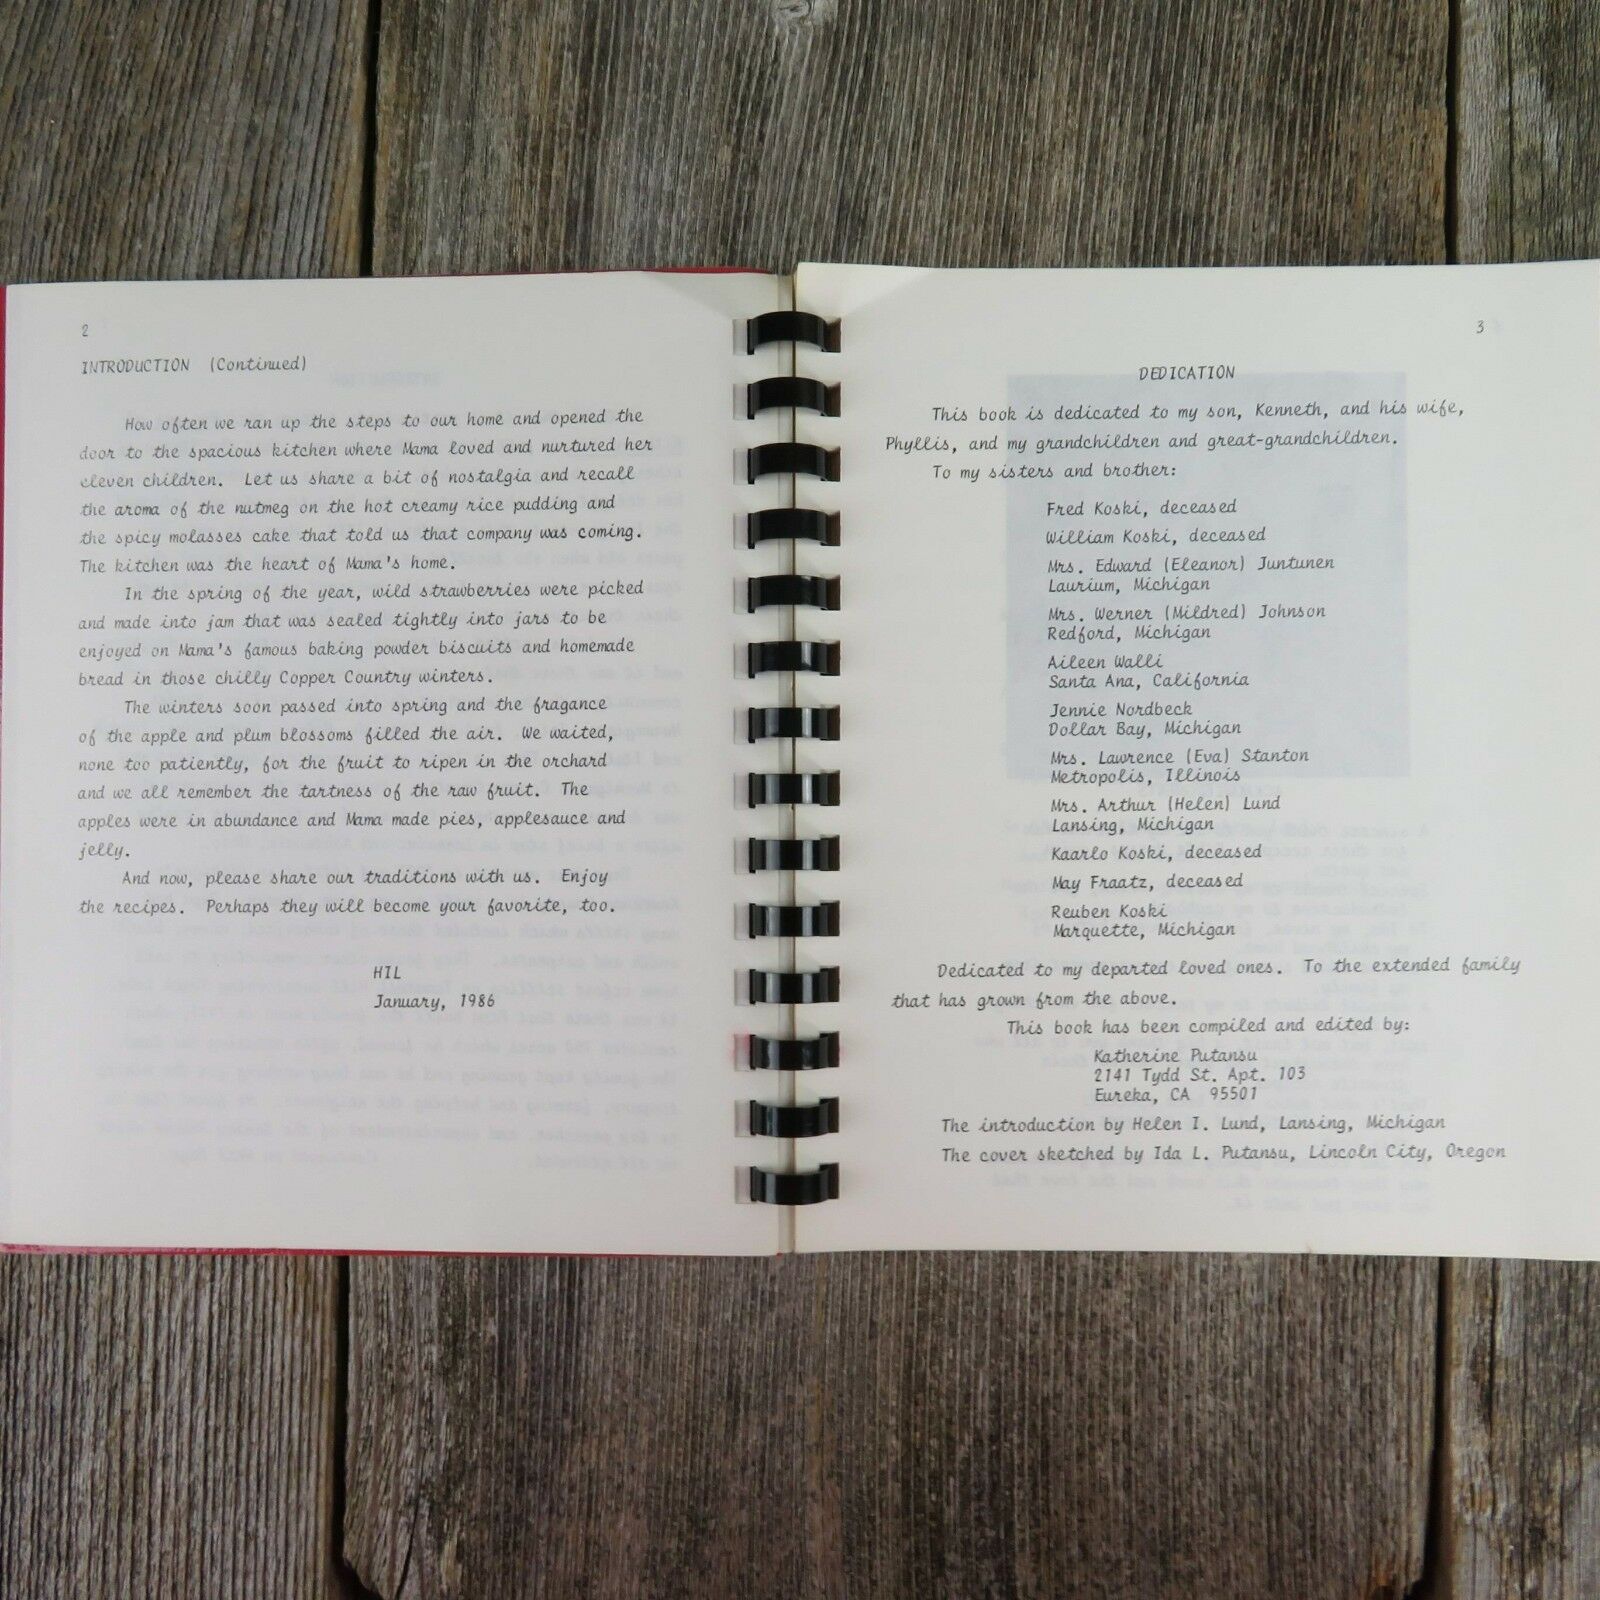 2
INTRODUCTION (Continued)
How often we ran up the steps to our home and opened the
door to the spacious kitchen where Mama loved and nurtured her
eleven children. Let us share a bit of nostalgia and recall
the aroma of the nutmeg on the hot creamy rice pudding and
the spicy molasses cake that told us that company was coming.
The kitchen was the heart of Mama's home.
In the spring of the year, wild strawberries were picked
and made into jam that was sealed tightly into jars to be
enjoyed on Mama's famous baking powder biscuits and homemade
bread in those chilly Copper Country winters.
The winters soon passed into spring and the fragance
of the apple and plum blossoms filled the air. We waited,
none too patiently, for the fruit to ripen in the orchard
and we all remember the tartness of the raw fruit. The
apples were in abundance and Mama made pies, applesauce and
jelly.
And now, please share our traditions with us. Enjoy
the recipes. Perhaps they will become your favorite, too.
HIL
January, 1986
3
DEDICATION
This book is dedicated to my son, Kenneth, and his wife,
Phyllis, and my grandchildren and great-grandchildren.
To my sisters and brother:
Fred Koski, deceased
William Koski, deceased
Mrs. Edward (Eleanor) Juntunen
Laurium, Michigan
Mrs. Werner (Mildred) Johnson
Redford, Michigan
Aileen Walli
Santa Ana, California
Jennie Nordbeck
Dollar Bay, Michigan
Mrs. Lawrence (Eva) Stanton
Metropolis, Illinois
Mrs. Arthur (Helen) Lund
Lansing, Michigan
Kaarlo Koski, deceased
May Fraatz, deceased
Reuben Koski
Marquette, Michigan
Dedicated to my departed loved ones. To the extended family
that has grown from the above.
This book has been compiled and edited by:
Katherine Putansu
2141 Tydd St. Apt. 103
Eureka, CA 95501
The introduction by Helen I. Lund, Lansing, Michigan
The cover sketched by Ida L. Putansu, Lincoln City, Oregon